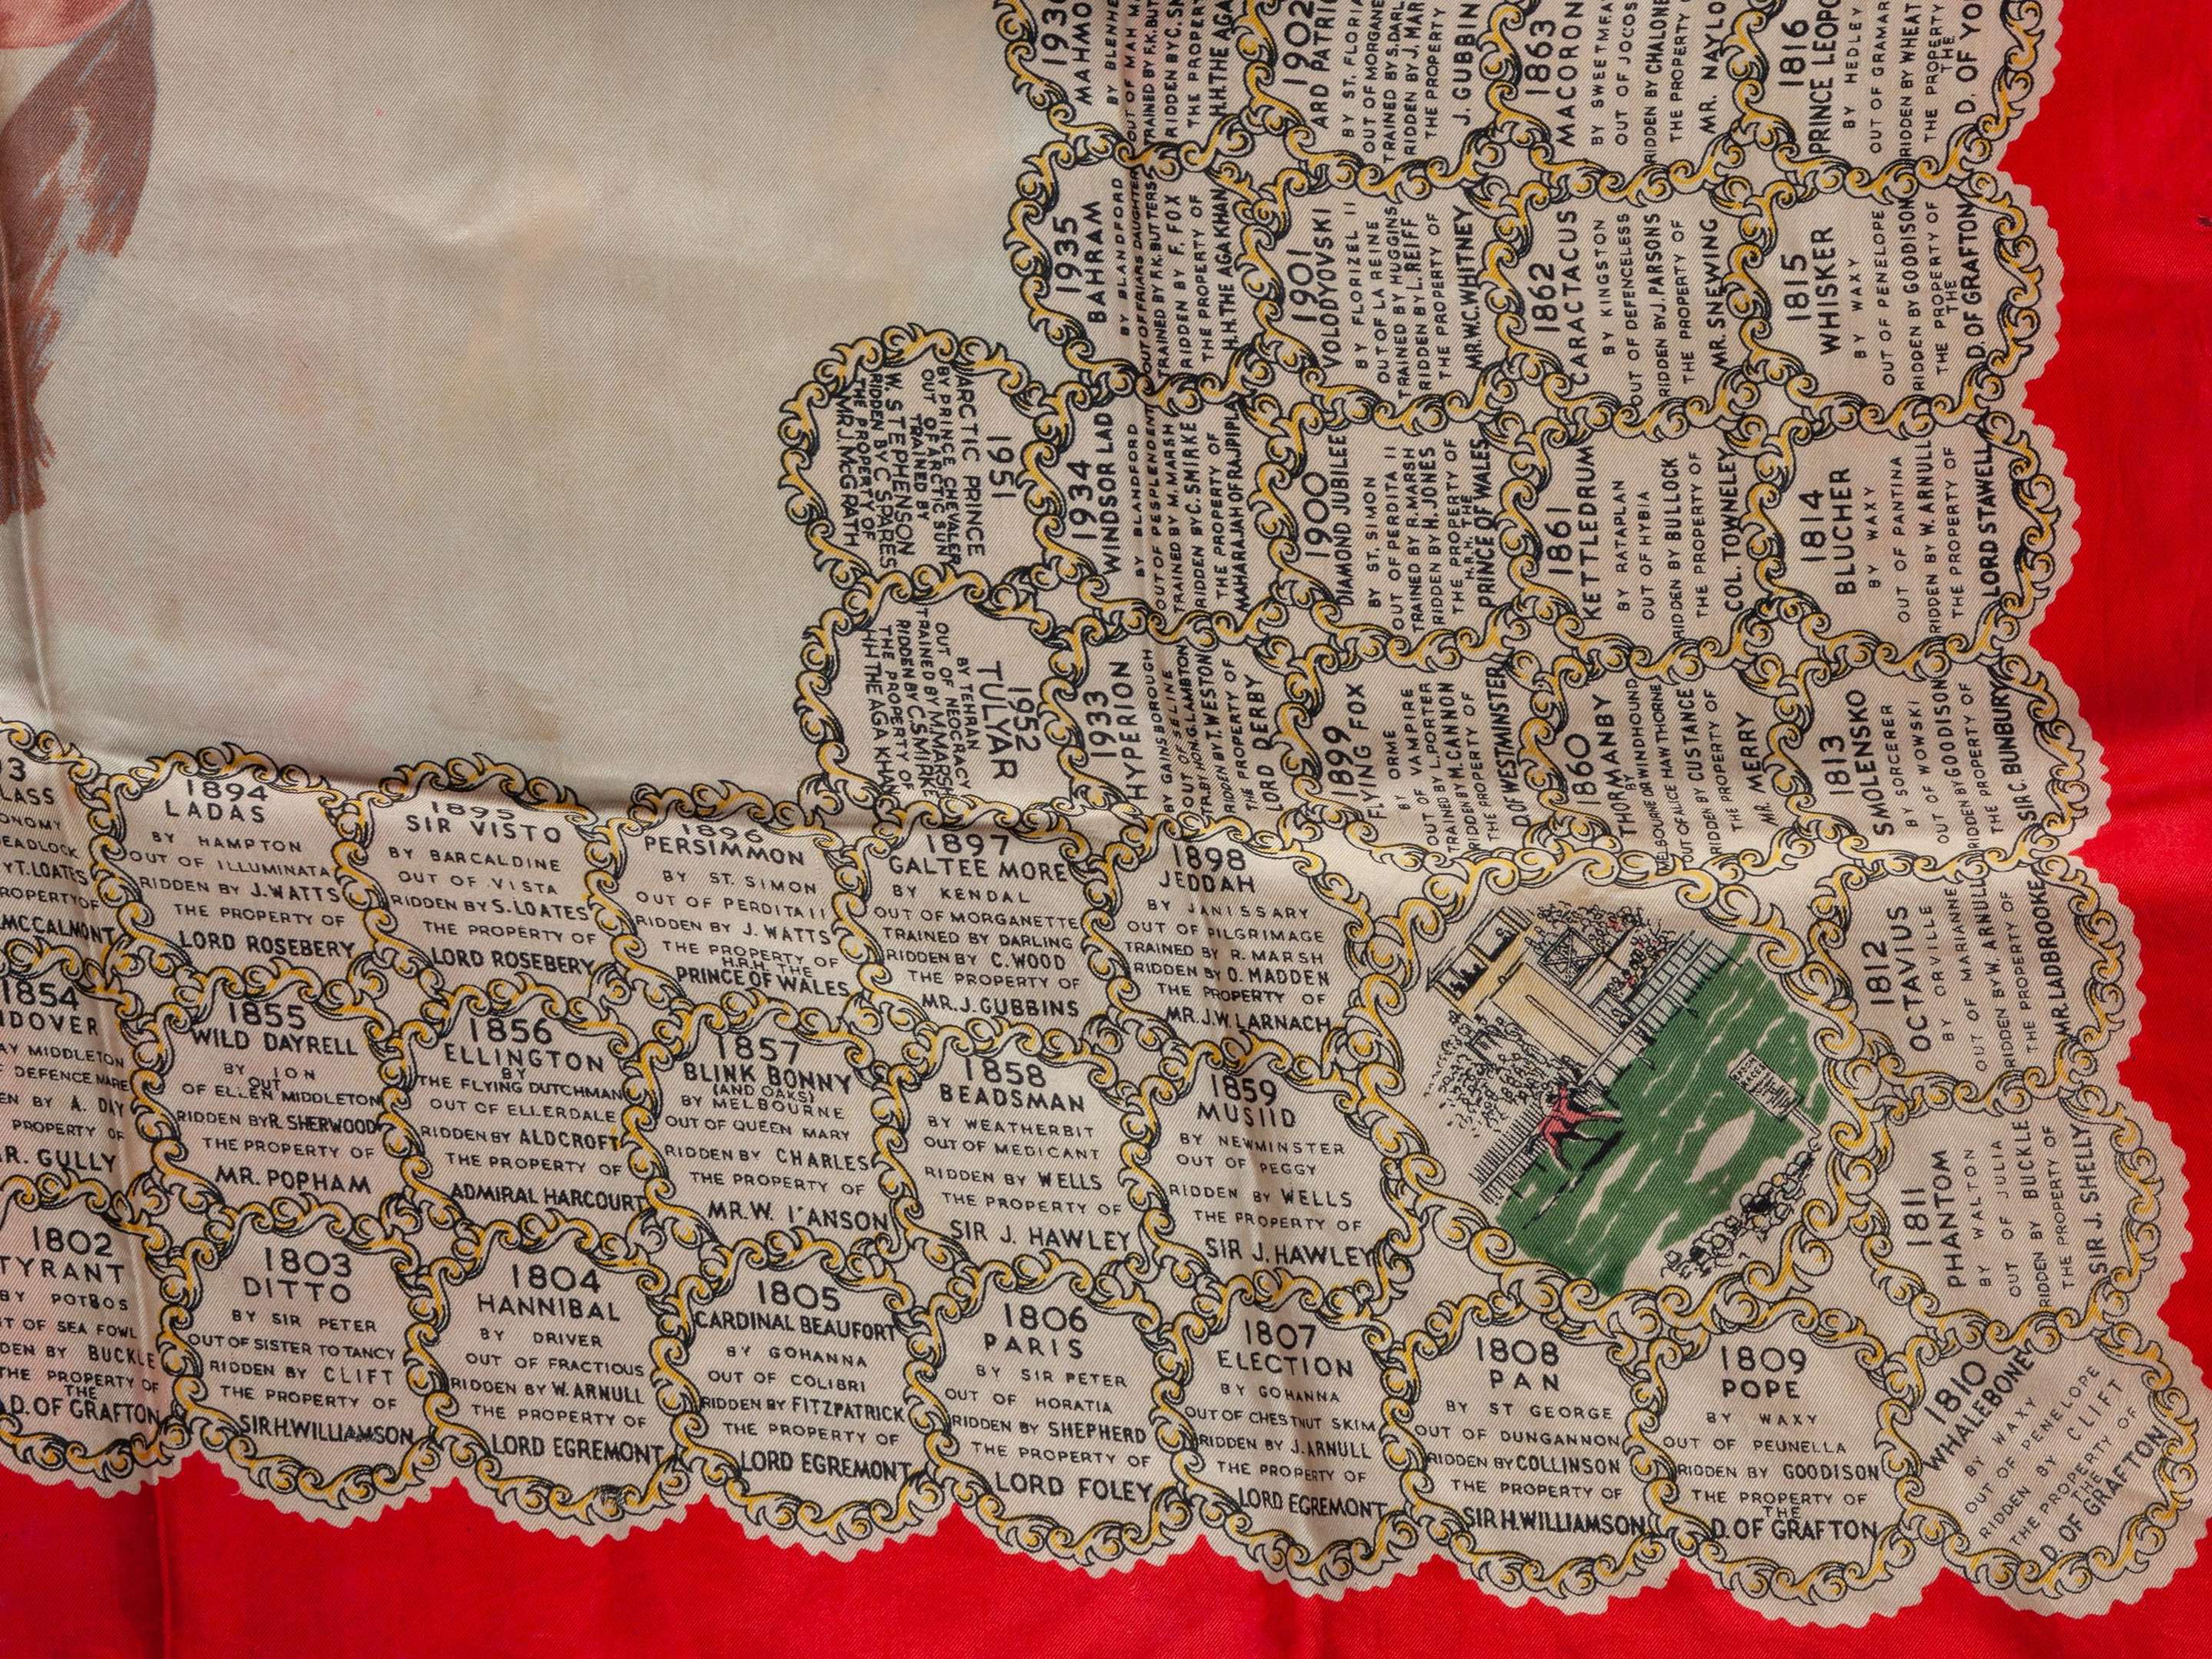 1894
LADAS
BY HAMPTON
OUT OF ILLUMINATA
RIDDEN BY J. WATTS
THE PROPERTY OF
LORD ROSEBERY
1895
SIR VISTO
BY BARCALDINE
OUT OF VISTA
RIDDEN BY S. LOATES
THE PROPERTY OF
LORD ROSEBERY
1896
PERSIMMON
BY ST. SIMON
OUT OF PERDITA II
RIDDEN BY J. WATTS
THE PROPERTY OF
H.R.H. THE
PRINCE OF WALES
1897
GALTEE MORE
BY KENDAL
OUT OF MORGANETTE
TRAINED BY DARLING
RIDDEN BY C. WOOD
THE PROPERTY OF
MR. J. GUBBINS
1898
JEDDAH
BY JANISSARY
OUT OF PILGRIMAGE
TRAINED BY R. MARSH
RIDDEN BY O. MADDEN
THE PROPERTY OF
MR. J.W. LARNACH
1854
DEFENCE MARE
A. DAY
PROPERTY OF
GULLY
1855
WILD DAYRELL
BY ION
OUT
OF ELLEN MIDDLETON
RIDDEN BY R. SHERWOOD
THE PROPERTY OF
MR. POPHAM
1856
ELLINGTON
BY
THE FLYING DUTCHMAN
OUT OF ELLERDALE
RIDDEN BY ALDCROFT
THE PROPERTY OF
ADMIRAL HARCOURT
1857
BLINK BONNY
(AND OAKS)
BY MELBOURNE
OUT OF QUEEN MARY
RIDDEN BY CHARLES
THE PROPERTY OF
MR. W. I'ANSON
1858
BEADSMAN
BY WEATHERBIT
OUT OF MEDICANT
RIDDEN BY WELLS
THE PROPERTY OF
SIR J. HAWLEY
1859
MUSIID
BY NEWMINSTER
OUT OF PEGGY
RIDDEN BY WELLS
THE PROPERTY OF
SIR J. HAWLEY
1802
TYRANT
BY POTBOS
OF SEA FOWL
BUCKLE
THE PROPERTY OF
THE
D. OF GRAFTON
1803
DITTO
BY SIR PETER
OUT OF SISTER TO TANCY
RIDDEN BY CLIFT
THE PROPERTY OF
SIR H. WILLIAMSON
1804
HANNIBAL
BY DRIVER
OUT OF FRACTIOUS
RIDDEN BY W. ARNULL
THE PROPERTY OF
LORD EGREMONT
1805
CARDINAL BEAUFORT
BY GOHANNA
OUT OF COLIBRI
RIDDEN BY FITZPATRICK
THE PROPERTY OF
LORD EGREMONT
1806
PARIS
BY SIR PETER
OUT OF HORATIA
RIDDEN BY SHEPHERD
THE PROPERTY OF
LORD FOLEY
1807
ELECTION
BY GOHANNA
OUT OF CHESTNUT SKIM
RIDDEN BY J. ARNULL
THE PROPERTY OF
LORD EGREMONT
1808
PAN
BY ST GEORGE
OUT OF DUNGANNON
RIDDEN BY COLLINSON
THE PROPERTY OF
SIR H. WILLIAMSON
1809
POPE
BY WAXY
OUT OF PEUNELLA
RIDDEN BY GOODISON
THE PROPERTY OF
THE
D. OF GRAFTON
1810
WHALEBONE
BY WAXY
OUT OF PENELOPE
RIDDEN BY CLIFT
THE PROPERTY OF
THE
D. OF GRAFTON
1811
PHANTOM
BY WALTON
OUT OF JULIA
RIDDEN BY BUCKLE
THE PROPERTY OF
SIR J. SHELLY
1812
OCTAVIUS
BY ORVILLE
OUT OF MARIANNE
RIDDEN BY W. ARNULL
THE PROPERTY OF
MR. LADBROOKE
1813
SMOLENSKO
BY SORCERER
OUT OF WOWSKI
RIDDEN BY GOODISON
THE PROPERTY OF
SIR C. BUNBURY
1814
BLUCHER
BY WAXY
OUT OF PANTINA
RIDDEN BY W. ARNULL
THE PROPERTY OF
LORD STAWELL
1815
WHISKER
BY WAXY
OUT OF PENELOPE
RIDDEN BY GOODISON
THE PROPERTY OF
THE
D. OF GRAFTON
1816
PRINCE
BY HEDLEY
OUT OF
RIDDEN BY
THE PROPERTY
THE
D. OF
1860
THORMANBY
BY
MELBOURNE OR WINDHOUND
OUT OF ALICE HAWTHORNE
RIDDEN BY CUSTANCE
THE PROPERTY OF
MR. MERRY
1861
KETTLEDRUM
BY RATAPLAN
OUT OF HYBIA
RIDDEN BY BULLOCK
THE PROPERTY OF
COL. TOWNELEY
1862
CARACTACUS
BY KINGSTON
OUT OF DEFENCELESS
RIDDEN BY J. PARSONS
THE PROPERTY OF
MR. SNEWING
1863
BY
OUT OF
RIDDEN BY
THE PROPERTY
MR.
1899
FLYING FOX
BY ORME
OUT OF VAMPIRE
TRAINED BY L. PORTER
RIDDEN BY M. CANNON
THE PROPERTY OF
D. OF WESTMINSTER
1900
DIAMOND JUBILEE
BY ST. SIMON
OUT OF PERDITA II
TRAINED BY R. MARSH
RIDDEN BY H. JONES
THE PROPERTY OF
H.R.H. THE
PRINCE OF WALES
1901
VOLODYOVSKI
BY FLORIZEL II
OUT OF LA REINE
TRAINED BY HUGGINS
RIDDEN BY L. REIFF
THE PROPERTY OF
MR. W.C. WHITNEY
1902
ARD
BY ST.
OUT OF
TRAINED BY
RIDDEN BY
THE PROPERTY
J.
1933
HYPERION
BY GAINSBOROUGH
OUT OF SELINE
TR. BY HON. G. LAMBTON
RIDDEN BY T. WESTON
THE PROPERTY OF
THE
LORD DERBY
1934
WINDSOR LAD
BY BLANDFORD
OUT OF PESPLENDENT
TRAINED BY M. MARSH
RIDDEN BY C. SMIRKE
THE PROPERTY OF
MAHARAJAH OF RAJPIPLA
1935
BAHRAM
BY BLANDFORD
OUT OF FRIARS DAUGHTER
TRAINED BY F.K. BUTTERS
RIDDEN BY F. FOX
THE PROPERTY OF
H.H. THE AGA KHAN
BY
OUT OF MAH
TRAINED BY
RIDDEN BY
THE PROPERTY
H.H. THE AGA
1951
ARCTIC PRINCE
BY PRINCE CHEVALER
OUT OF ARCTIC SUN
TRAINED BY
W. STEPHENSON
RIDDEN BY C SPARES
THE PROPERTY OF
MR J. MCGRATH
1952
TULYAR
BY TEHRAN
OUT OF NEOCRACY
TRAINED BY M. MARSH
RIDDEN BY C. SMIRKE
THE PROPERTY OF
H H THE AGA KHAN